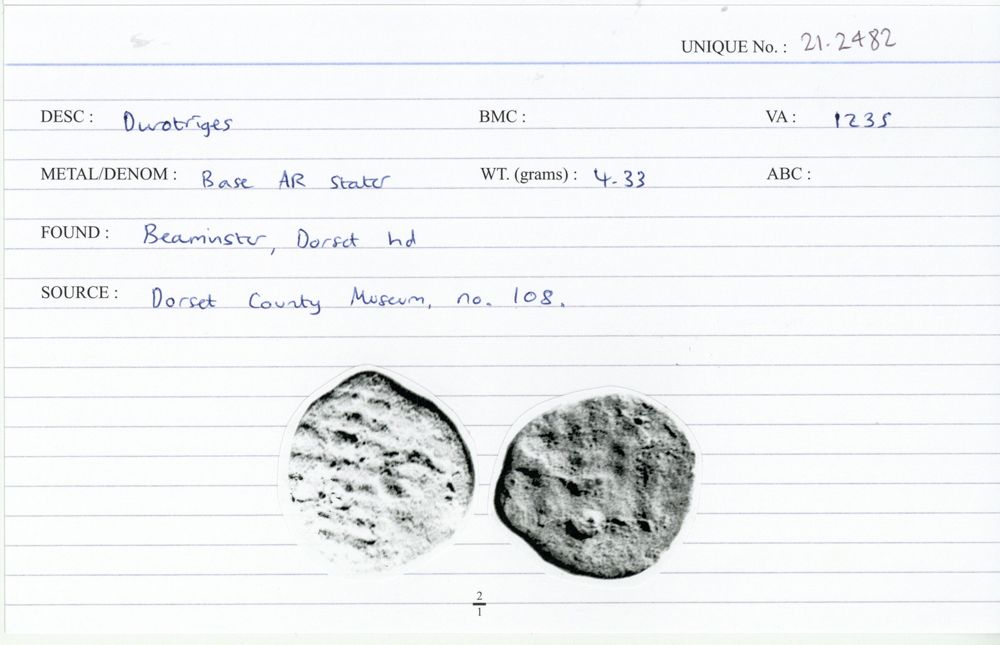 UNIQUE No. : 21.2482
DESC : Durotriges BMC : VA : 1235
METAL/DENOM : Base AR stater WT. (grams) : 4.33 ABC :
FOUND : Beaminster, Dorset hd
SOURCE : Dorset County Museum, no. 108.
2
1